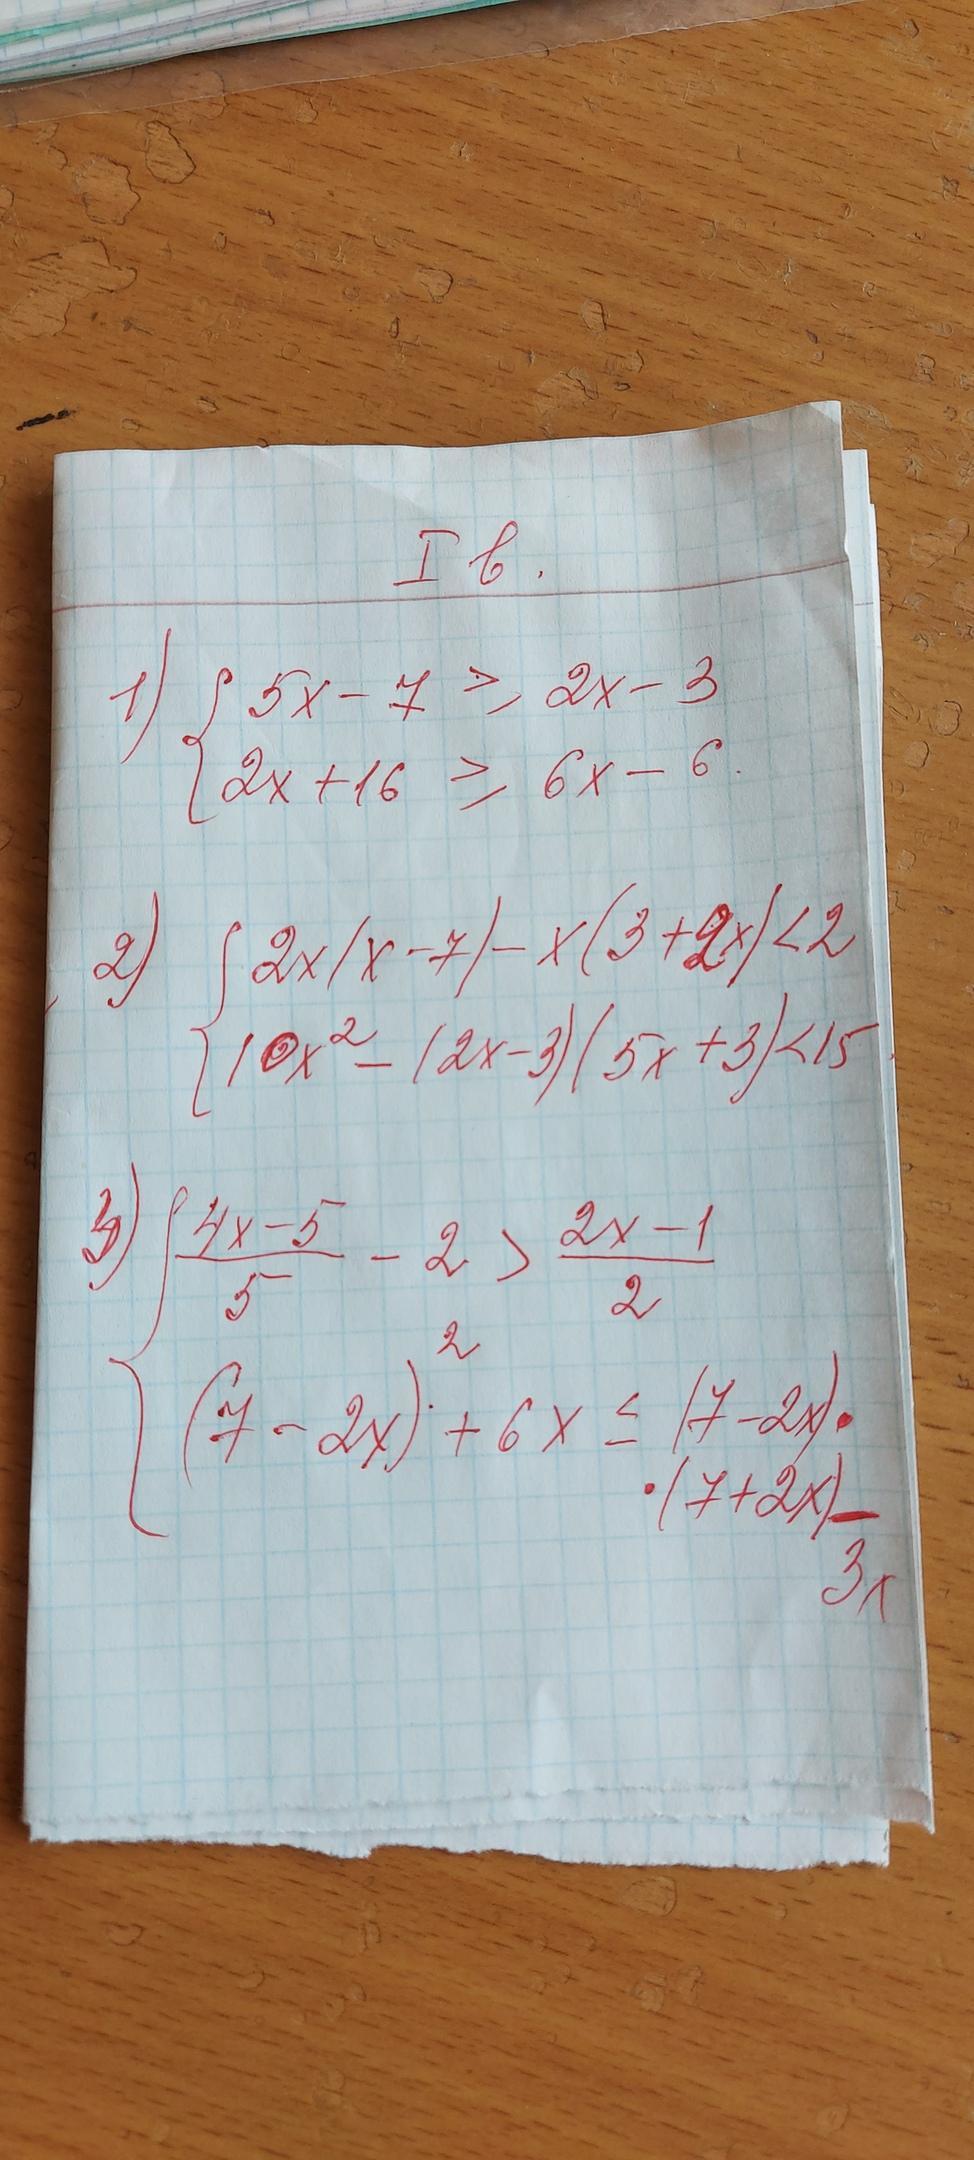 I в.
1) { 5x - 7 ≥ 2x - 3
2x + 16 ≥ 6x - 6.
2) { 2x(x - 7) - x(3 + 2x) < 2
10x² - (2x - 3)(5x + 3) < 15.
3) { (4x - 5)/5 - 2 > (2x - 1)/2
(7 - 2x)² + 6x ≤ (7 - 2x)·
·(7 + 2x) -
3x